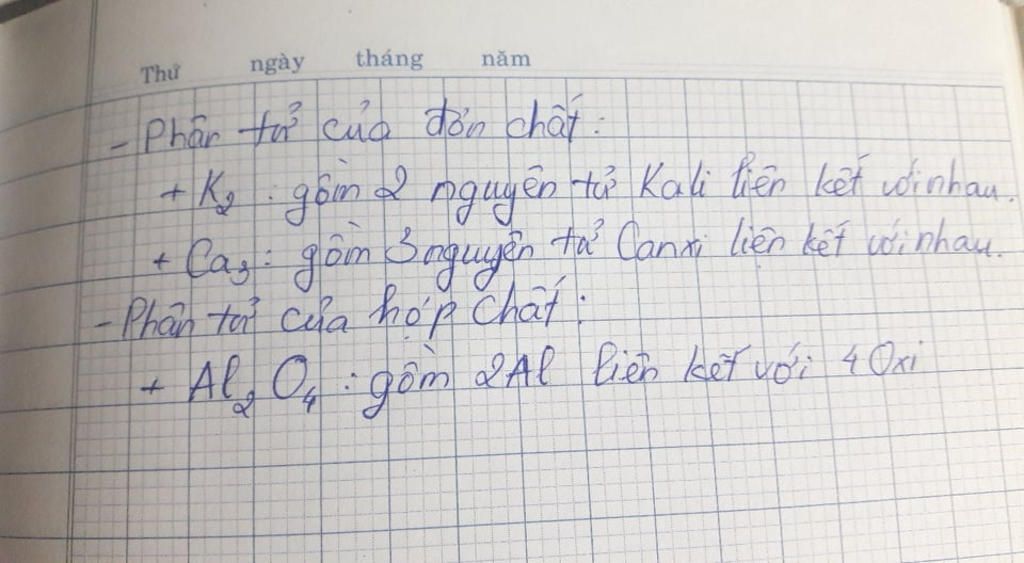 Thứ ngày tháng năm
- Phân tử của đơn chất:
+ K₂: gồm 2 nguyên tử Kali liên kết với nhau.
+ Ca₃: gồm 3 nguyên tử Canxi liên kết với nhau.
- Phân tử của hợp chất:
+ Al₂O₄: gồm 2Al liên kết với 4 Oxi